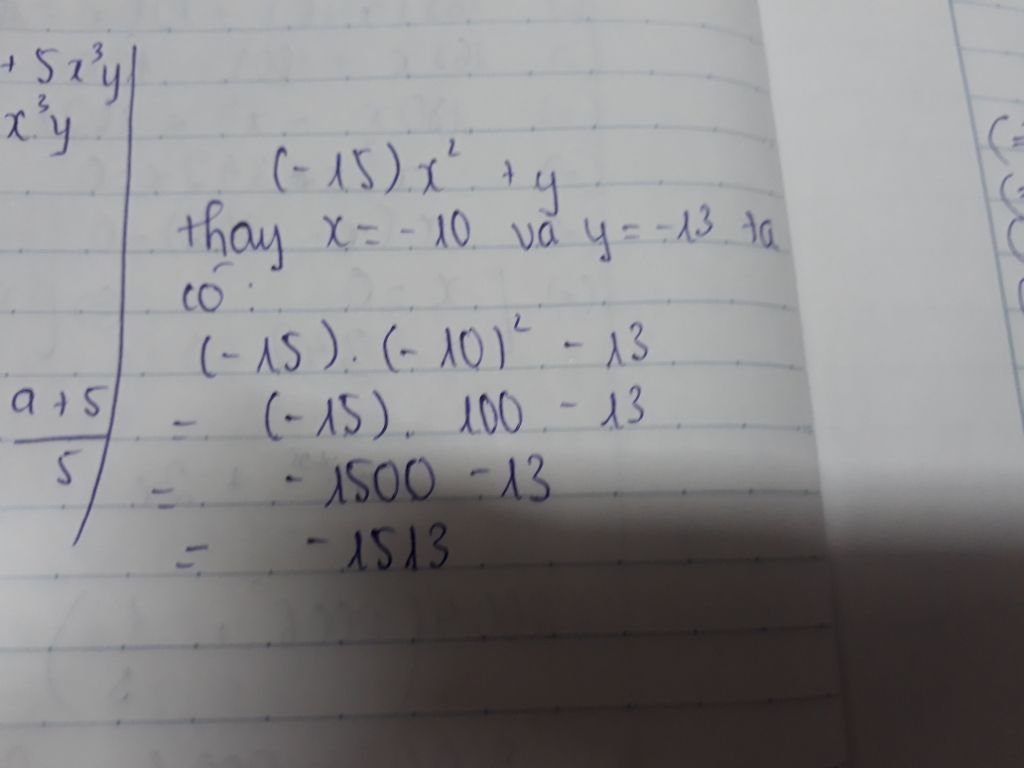 + 5x³y
x³y
(-15)x² + y
thay x = -10 và y = -13 ta
có:
(-15).(-10)² - 13
a + 5
= (-15). 100 - 13
5
= -1500 - 13
= -1513